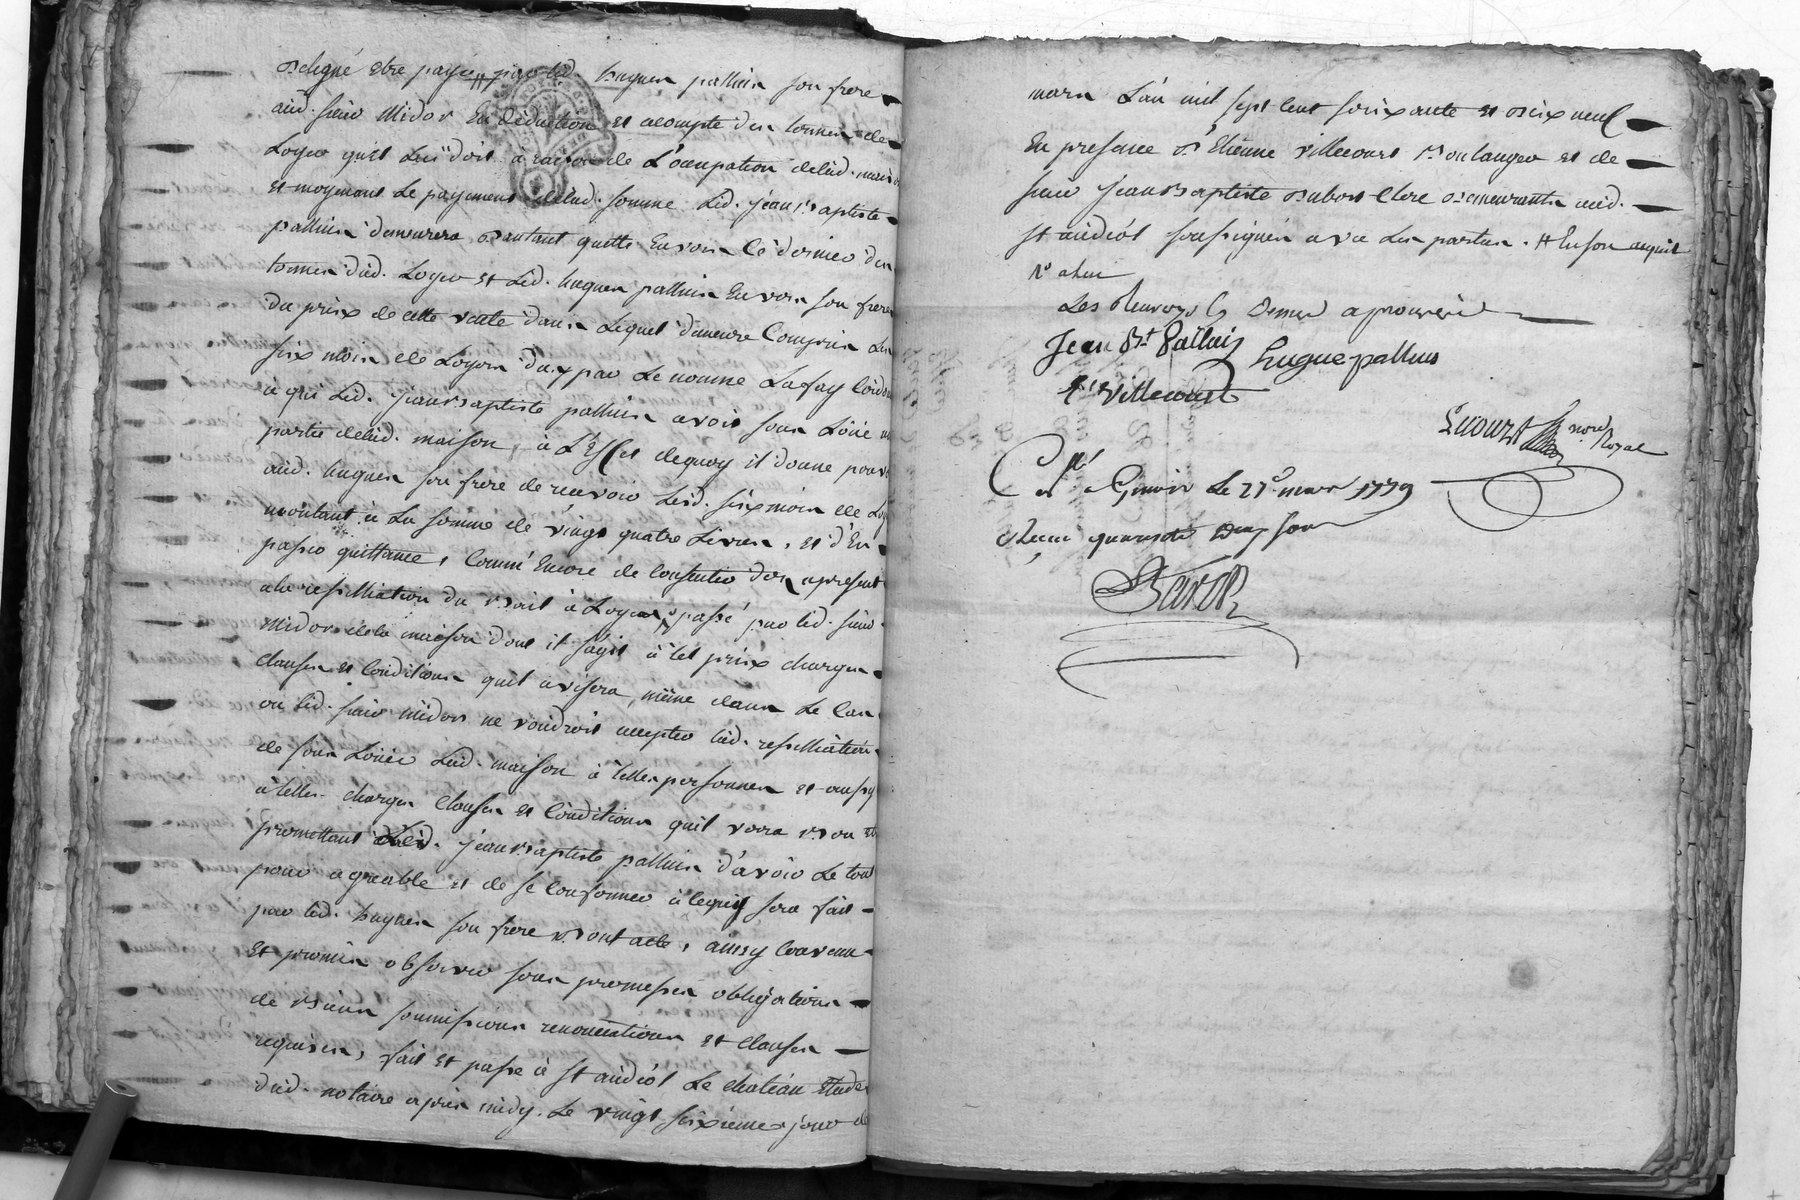 obligé etre payé # par led. hugues palluis son frere
aud. sieur Midor En deduction et acompte des termes de
Loyer quil Lui doit à raison de L'occupation delad. maison
et moyenant Le payement delad. somme Led. jean Baptiste
palluis demeurera d'autant quitte Envers le dernier des
termes dud. Loyer et Led. hugues palluis Envers son frere
du prix de cette vente dans Lequel demeure Compris Les
six mois de Loyers du par Le nomme Lafay
à qui Led. jean Baptiste palluis avoit sous Loüé une
partie delad. maison, à L'Effet dequoy il donne pouvoir
aud. hugues son frere de recevoir Lesd. six mois de Loyer
montant à La somme de vingt quatre Livres, et d'En
passer quittance, Comme Encore de consentir des apresent
ala resilliation du Bail à Loyer # passé par led. sieur
Midor dela maison dont il s'agit à tel prix charges
clauses et Conditions quil avisera, même dans Le Cas
ou led. sieur midor ne voudroit accepter lad. resilliation
de sous Loüer Lad. maison à telles personnes et aussy
à telles charges Clauses et Conditions quil verra Bon Et
promettant Led. jean Baptiste palluis d'avoir Le tout
pour agreable et de se conformer à lequel sera fait
par led. hugues son frere Dont acte, ainsy Convenu
Et promis observer sous promesses obligations
de Biens soumissions renonciations et Clauses
requises, fait Et passé à st andéol Le chateau Etude
dud. notaire apres midy. Le vingt sixieme jour de
mars L'an mil sept cent soixante et dix neuf
En presence d'Etienne villecourt Boulanger et de
sieur jean Baptiste Dubost Clerc demeurants aud.
st andéol soussignés avec Les parties. # En son acquit
Les Renvoys cy dessus approuvés
Jean Bt Palluis hugue palluis
E villecourt
not. Royal
C. lé a Givors Le 27 mars 1779
Recu quarante deux sous